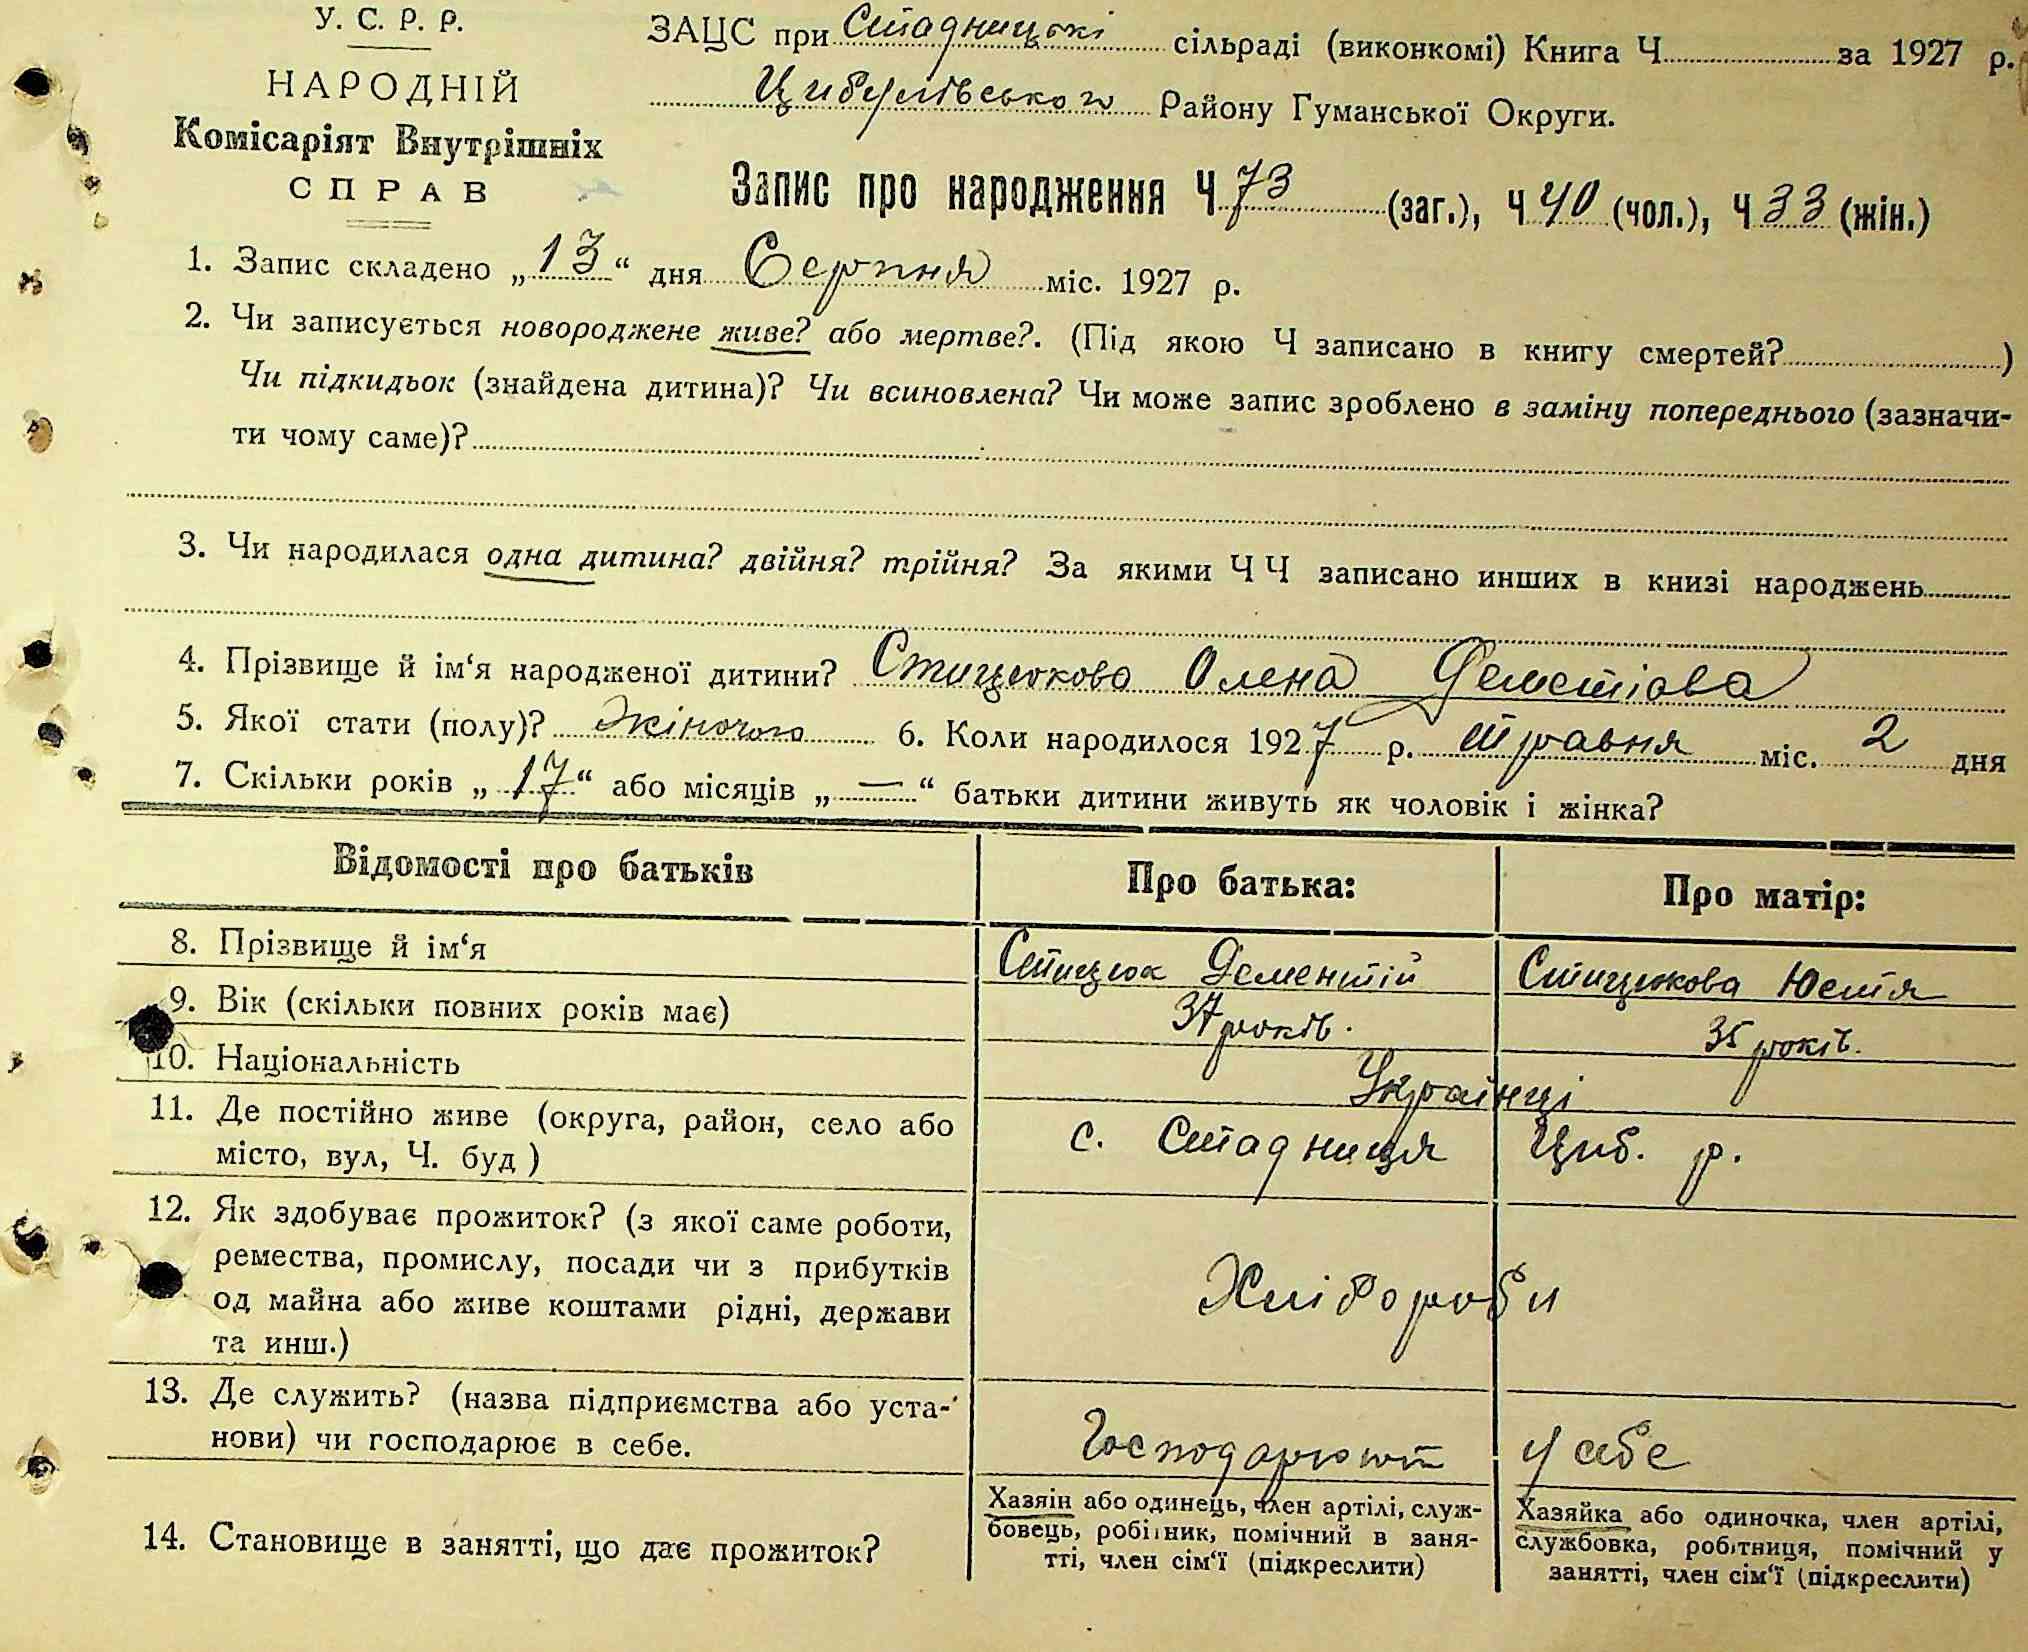 У. С. Р. Р.
НАРОДНІЙ
Комісаріят Внутрішніх
СПРАВ
ЗАЦС при Стадницькі сільраді (виконкомі) Книга Ч. за 1927 р.
Цибулівського Району Гуманської Округи.
Запис про народження Ч 73 (заг.), Ч 40 (чол.), Ч 33 (жін.)
1. Запис складено „13“ дня Серпня міс. 1927 р.
2. Чи записується новороджене живе? або мертве?. (Під якою Ч записано в книгу смертей? )
Чи підкидьок (знайдена дитина)? Чи всиновлена? Чи може запис зроблено в заміну попереднього (зазначи-
ти чому саме)?
3. Чи народилася одна дитина? двійня? трійня? За якими Ч Ч записано инших в книзі народжень
4. Прізвище й ім‘я народженої дитини? Стицюкова Олена Деметіова
5. Якої стати (полу)? Жіночого 6. Коли народилося 1927 р. Травня міс. 2 дня
7. Скільки років „17“ або місяців „—“ батьки дитини живуть як чоловік і жінка?
Відомості про батьків Про батька: Про матір:
8. Прізвище й ім‘я Стицюк Дементій Стицюкова Юстя
9. Вік (скільки повних років має) 37 років. 35 років.
10. Національність Українці
11. Де постійно живе (округа, район, село або
місто, вул, Ч. буд ) с. Стадниця Циб. р.
12. Як здобуває прожиток? (з якої саме роботи,
ремества, промислу, посади чи з прибутків
од майна або живе коштами рідні, держави
та инш.) Хлібороби
13. Де служить? (назва підприємства або уста-
нови) чи господарює в себе. Господарюют у себе
14. Становище в занятті, що дає прожиток?
Хазяїн або одинець, член артілі, служ-
бовець, робітник, помічний в заня-
тті, член сім‘ї (підкреслити)
Хазяйка або одиночка, член артілі,
службовка, робітниця, помічний у
занятті, член сім‘ї (підкреслити)